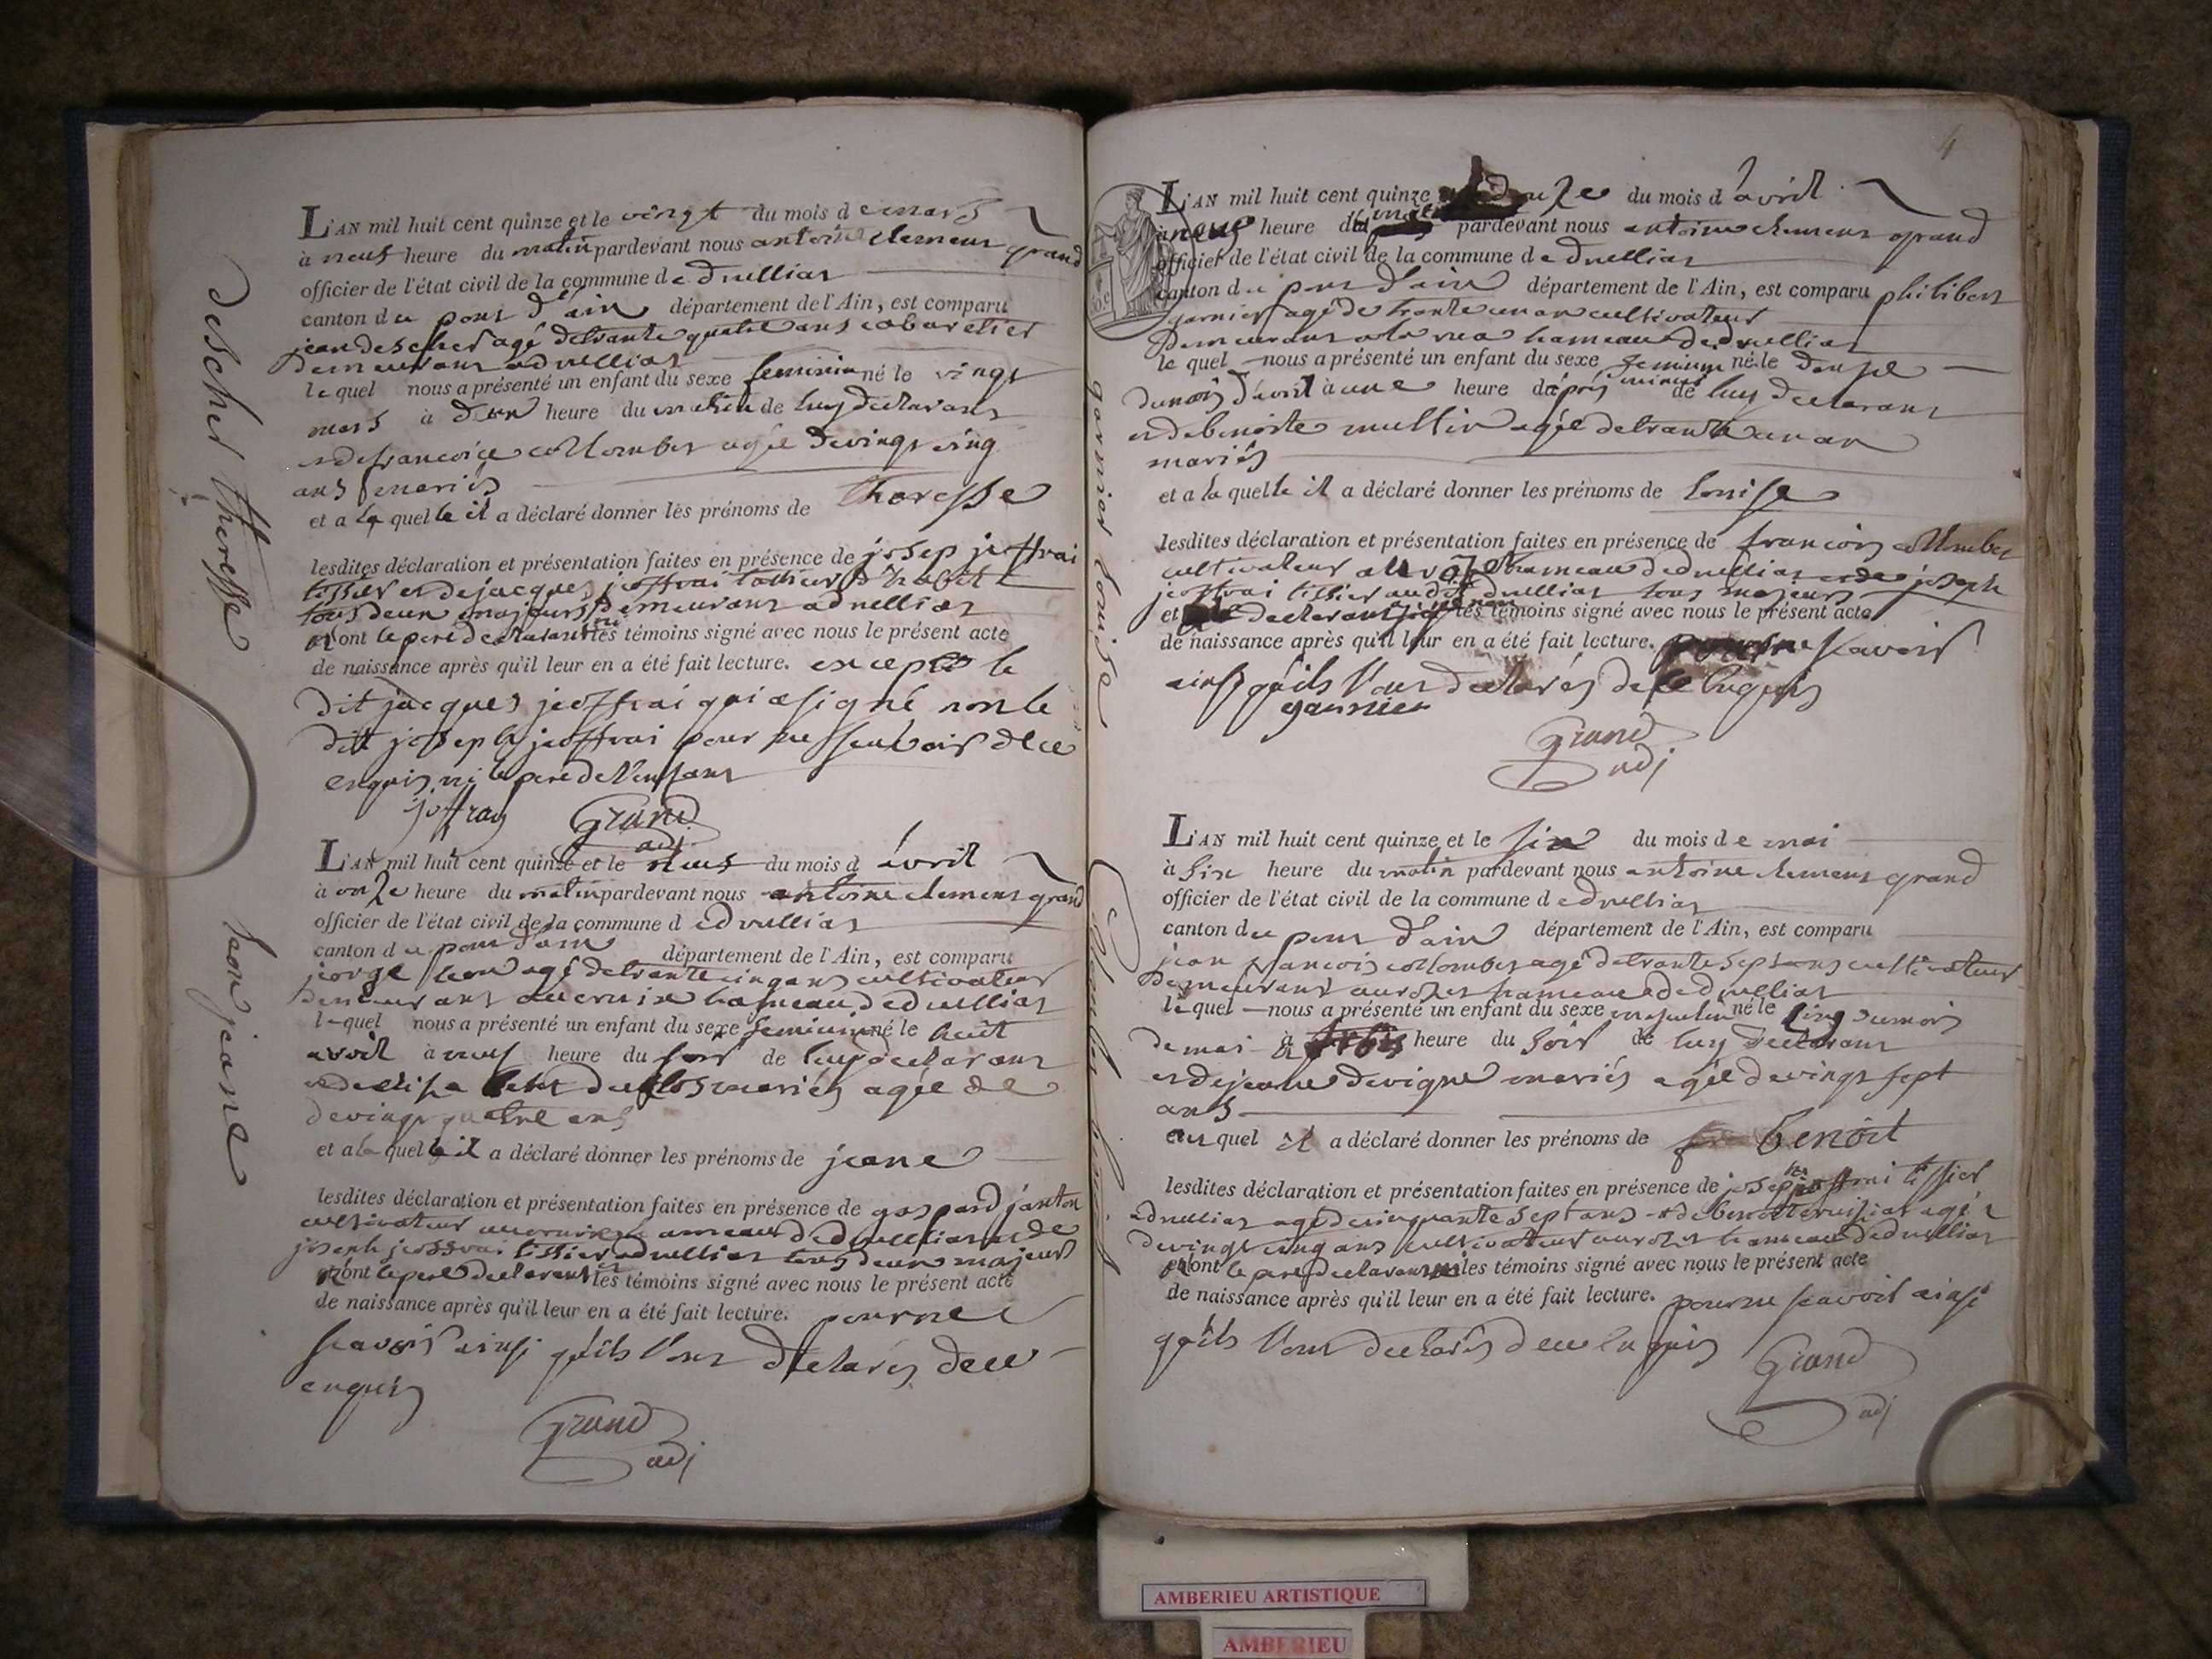 descher theresse
L'AN mil huit cent quinze et le vingt du mois de mars
à neuf heure du matin pardevant nous antoine clement grand
officier de l'état civil de la commune de druillias
canton du pont d'ain département de l'Ain, est comparu
jean descher agé de trante quatre ans cabaretier
demeurant a druillias
le quel nous a présenté un enfant du sexe feminin né le vingt
mars à heure du matin de luy declarant
et de francoise collomber agée de vingt cinq
ans mariés
et a la quelle il a déclaré donner les prénoms de theresse
lesdites déclaration et présentation faites en présence de josep jeoffrai
tissier et de jacques jeoffrai
tous deux majeurs demeurant a druillias
et ont le pere declarant ni les témoins signé avec nous le présent acte
de naissance après qu'il leur en a été fait lecture. excepté le
dit jacques jeoffrai qui a signé non le
dit joseph jeoffrai pour ne sçavoir de ce
enquis ni le pere de l'enfant
joffray Grand
adj
laon jeane
L'AN mil huit cent quinze et le neuf du mois d avril
à onze heure du matin pardevant nous antoine clement grand
officier de l'état civil de la commune d e druillias
canton du pont d'ain département de l'Ain, est comparu
jorge laon agé de trante cinq ans cultivateur
demeurant au croix hameau de druillias
le quel nous a présenté un enfant du sexe feminin né le huit
avril à neuf heure du soir de luy declarant
et de elise du clos mariés agée de
de vingt quatre ans
et a la quelle il a déclaré donner les prénoms de jeane
lesdites déclaration et présentation faites en présence de gaspard janton
cultivateur hameau de druillias et de
joseph jeoffrai tissier a druillias tous deux majeurs
et ont le pere declarant ni les témoins signé avec nous le présent acte
de naissance après qu'il leur en a été fait lecture. pour ne
scavoir ainsi qu'ils l'ont declarés de ce
enquis
Grand
adj
4
garnier louise
L'AN mil huit cent quinze douze du mois d avril
à neuf heure du matin pardevant nous antoine clement grand
officier de l'état civil de la commune d e druillias
canton du pont d'ain département de l'Ain, est comparu philibert
garnier agé de trante un an cultivateur
demeurant a la rua hameau de druillias
le quel nous a présenté un enfant du sexe feminin né le douze
du mois d'avril à une heure dépris minuit de luy declarant
et de benoite mullin agée de trante un an
mariés
et a la quelle il a déclaré donner les prénoms de louise
lesdites déclaration et présentation faites en présence de francois collomber
cultivateur hameau de druillias et de joseph
jeoffrai tissier audit druillias tous majeurs
et le declarant les témoins signé avec nous le présent acte
de naissance après qu'il leur en a été fait lecture. pour ne scavoir
ainsi qu'ils l'ont declarés de ce enquis
garnier
Grand
adj
Collomber benoit
L'AN mil huit cent quinze et le six du mois d e mai
à six heure du matin pardevant nous antoine clement grand
officier de l'état civil de la commune d e druillias
canton du pont d'ain département de l'Ain, est comparu
jean francois collomber agé de trante sept ans cultivateur
demeurant hameau de druillias
le quel nous a présenté un enfant du sexe masculin né le cinq du mois
de mai à trois heure du soir de luy declarant
et de jeanne devigne mariés agée de vingt sept
ans
et au quel il a déclaré donner les prénoms de benoit
lesdites déclaration et présentation faites en présence de joseph jeoffrai tissier
a druillias agé de cinquante sept ans et de benoit agé
de vingt cinq ans cultivateur hameau de druillias
et ont le pere declarant ni les témoins signé avec nous le présent acte
de naissance après qu'il leur en a été fait lecture. pour ne scavoir ainsi
qu'ils l'ont declarés de ce enquis Grand
adj
AMBERIEU ARTISTIQUE
AMBERIEU